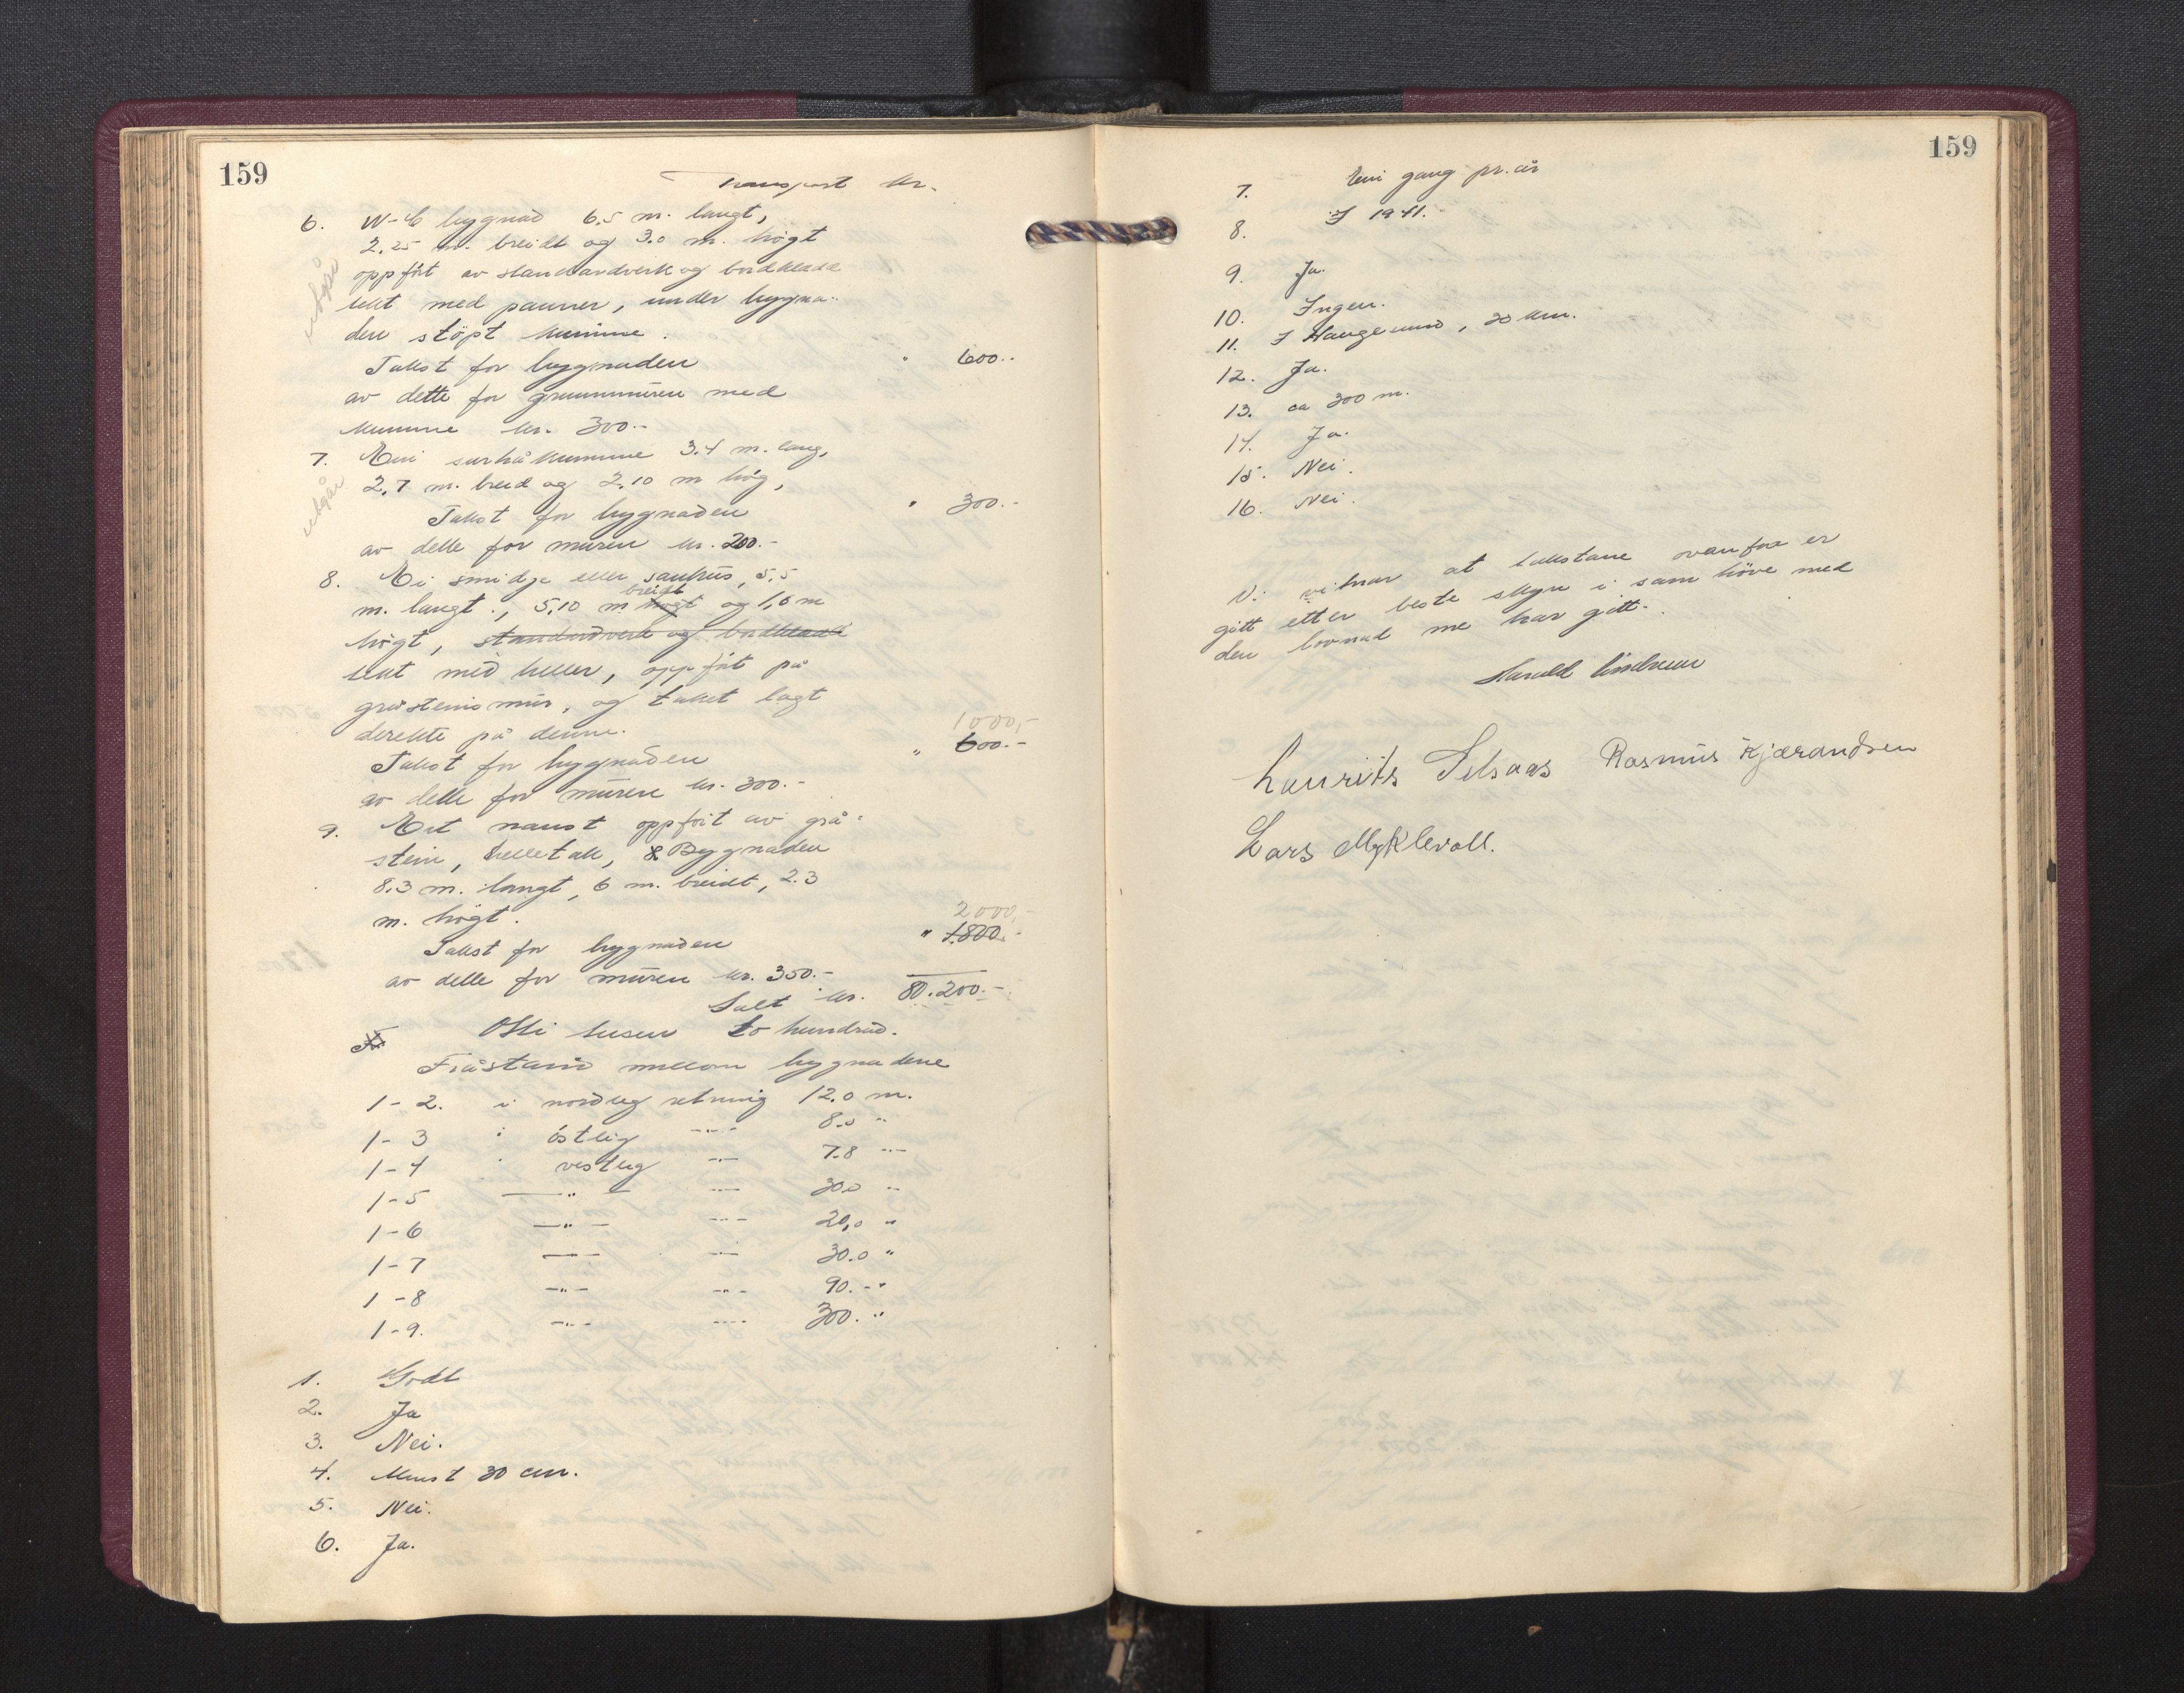 159
Transport kr.
6. W-C bygnad 6.5 m. langt,
2.25 m. breidt og 3.0 m. högt
oppfört av standardverk og bordkledd
tekt med panner, under bygna-
den stöpt kumme.
utgår
Takst for bygnaden " 600.-
av dette for grunnmuren med
kumme kr. 300.-
7. Ein surhåkumme 3.4 m. lang,
2,7 m. breid og 2,10 m hög,
utgår
Takst for bygnaden " 300.-
av dette for muren kr. 200.-
8. Ei smidje eller sauhus, 5,5
breidt
m. langt., 5,10 m högt og 1,6 m
högt, standardverk og bordkledd
tekt med heller, oppfört på
gråsteinsmur, og taket lagt
direkte på denne.
1000,-
Takst for bygnaden " 600.-
av dette for muren kr. 300.-
9. Eit naust oppfört av grå-
stein, helletak, & Bygnaden
8.3 m. langt, 6 m. breidt, 2.3
m. högt.
2000,-
Takst for bygnaden " 1.800.-
av dette for muren kr. 350.-
Salt kr. 80.200.-
Otti tusen to hundrad.
Fråstand mellom bygnadene
1-2. i nordleg retning 12.0 m.
1-3 i östleg -"- 8.0 "
1-4 " vestleg -"- 7.8 -"-
1-5 -"- -"- 30.0 "
1-6 -"- -"- 20,0 "
1-7 -"- -"- 30.0 "
1-8 -"- -"- 90.- "
1-9. -"- -"- 300. "
1. Godt
2. Ja
3. Nei.
4. Minst 30 cm.
5. Nei.
6. Ja.
159
7. Ein gang pr. år
8. I 1941.
9. Ja.
10. Ingen.
11. I Haugesund, 20 km.
12. Ja.
13. ca 300 m.
14. Ja.
15. Nei.
16. Nei.
Vi vitnar at takstane ovanfor er
gitt etter beste skyn i samhöve med
den lovnad me har gitt.
Harald Lindheim
Laurits Selsaas Rasmus Kjærandsen
Lars Myklevoll.